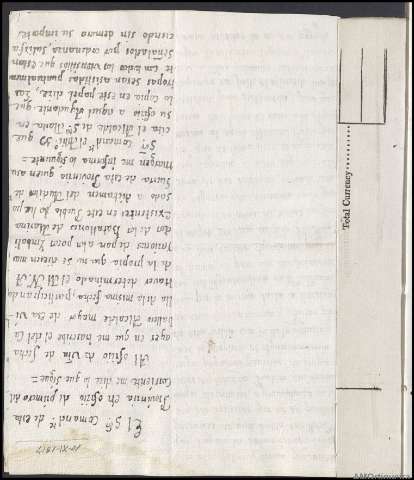 10-XI-1817
El Sor. Comandte. de esta
Provincia en oficio de primero del
Corriente me dice lo que sigue =
Al oficio de Vm de fecha
ayer en que me inserta el del Ca
ballero Alcalde mayor de esa Vi-
lla de la misma fecha, participando
haver determinado el M. Y. A.
de la propia que no se diesen mas
Raciones de pan a la poca Ymbali
dos de los Batallones de Marina
existentes en este Pueblo he pa
sado a dictamen del Auditor de
Guerra de esta Provincia quien al
margen me informa lo siguiente =
Sor. Comandte.
cite el Alcalde de Sta. Maria en
su oficio a aquel Ayudante que
lo copia en este papel, dice, las
tropas seran asistidas puntualmente
con todos los utensilios que estan
señalados por ordenanza satisfa
ciendo sin demora su importe
Total Currency